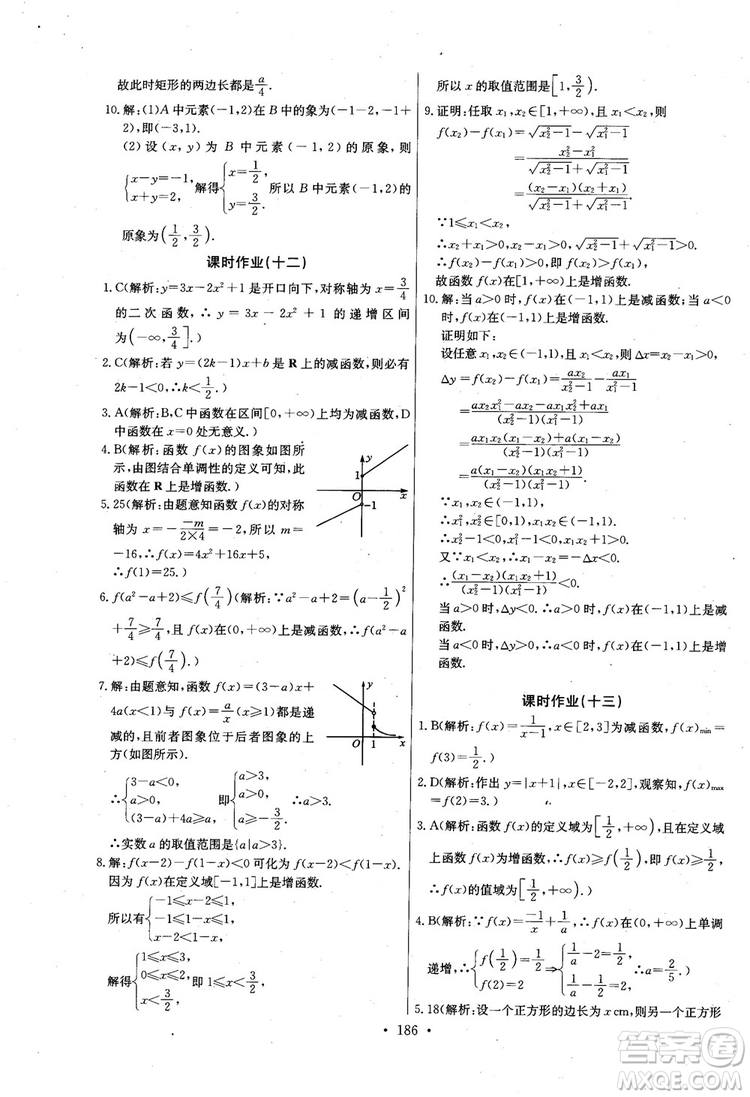 故此时矩形的两边长都是a/4.
10.解:(1)A中元素(-1,2)在B中的象为(-1-2,-1+
2),即(-3,1).
(2)设(x,y)为B中元素(-1,2)的原象,则
{x-y=-1, x+y=2, 解得{x=1/2, y=3/2. 所以B中元素(-1,2)的
原象为(1/2,3/2).
课时作业(十二)
1.C(解析:y=3x-2x²+1是开口向下,对称轴为x=3/4
的二次函数,∴y=3x-2x²+1的递增区间
为(-∞,3/4].)
2.C(解析:若y=(2k-1)x+b是R上的减函数,则必有
2k-1<0,∴k<1/2.)
3.A(解析:B、C中函数在区间[0,+∞)上均为减函数,D
中函数在x=0处无意义.)
4.B(解析:函数f(x)的图象如图所
示,由图结合单调性的定义可知,此
函数在R上是增函数.)
y
1
O
-1
x
5.25(解析:由题意知函数f(x)的对称
轴为x=-(-m)/(2×4)=-2,所以m=
-16,∴f(x)=4x²+16x+5,
∴f(1)=25.)
6.f(a²-a+2)≤f(7/4)(解析:∵a²-a+2=(a-1/2)²
+7/4≥7/4,且f(x)在(0,+∞)上是减函数,∴f(a²-a
+2)≤f(7/4).)
7.解:由题意知,函数f(x)=(3-a)x+
4a(x<1)与f(x)=a/x(x≥1)都是递
减的,且前者图象位于后者图象的上
方(如图所示).
y
O
1
x
∴{3-a<0, a>0, (3-a)+4a≥a, 即{a>3, a>0, a≥-3/2. ∴a>3.
∴实数a的取值范围是{a|a>3}.
8.解:f(x-2)-f(1-x)<0可化为f(x-2)<f(1-x).
因为f(x)在定义域[-1,1]上是增函数.
所以有{-1≤x-2≤1, -1≤1-x≤1, x-2<1-x.
解得{1≤x≤3, 0≤x≤2, x<3/2, 即1≤x<3/2.
所以x的取值范围是[1,3/2).
9.证明:任取x₁,x₂∈[1,+∞),且x₁<x₂,则
f(x₂)-f(x₁)=√(x₂²-1)-√(x₁²-1)
=(x₂²-x₁²)/(√(x₂²-1)+√(x₁²-1))
=(x₂-x₁)(x₂+x₁)/(√(x₂²-1)+√(x₁²-1)).
∵1≤x₁<x₂,
∴x₂+x₁>0,x₂-x₁>0,√(x₂²-1)+√(x₁²-1)>0.
∴f(x₂)-f(x₁)>0,即f(x₂)>f(x₁),
故函数f(x)在[1,+∞)上是增函数.
10.解:当a>0时,f(x)在(-1,1)上是减函数;当a<0
时,f(x)在(-1,1)上是增函数.
证明如下:
设任意x₁,x₂∈(-1,1),且x₁<x₂,则Δx=x₂-x₁>0,
Δy=f(x₂)-f(x₁)=ax₂/(x₂²-1)-ax₁/(x₁²-1)
=(ax₂x₁²-ax₂-ax₁x₂²+ax₁)/((x₂²-1)(x₁²-1))
=(ax₁x₂(x₁-x₂)+a(x₁-x₂))/((x₂²-1)(x₁²-1))
=a(x₁-x₂)(x₁x₂+1)/((x₂²-1)(x₁²-1)).
∵x₁,x₂∈(-1,1),
∴x₁²,x₂²∈[0,1),x₁x₂∈(-1,1),
∴x₂²-1<0,x₁²-1<0,x₁x₂+1>0.
又∵x₁<x₂,∴x₁-x₂=-Δx<0.
∴(x₁-x₂)(x₁x₂+1)/((x₂²-1)(x₁²-1))<0.
当a>0时,Δy<0.∴a>0时,f(x)在(-1,1)上是减
函数.
当a<0时,Δy>0.∴a<0时,f(x)在(-1,1)上是增
函数.
课时作业(十三)
1.B(解析:f(x)=1/(x-1),x∈[2,3]为减函数,f(x)min=
f(3)=1/2.)
2.D(解析:作出y=|x+1|,x∈[-2,2],观察知,f(x)max
=f(2)=3.)
3.A(解析:函数f(x)的定义域为[1/2,+∞),且在定义域
为增函数,∴x∈[1/2,+∞),∴f(x)≥f(1/2),即f(x)≥1/2,
∴f(x)的值域为[1/2,+∞).)
4.B(解析:∵f(x)=-1/x+1/a,∴f(x)在(0,+∞)上单调
递增,∴{f(1/2)=1/2 f(2)=2⇒{1/a-2=1/2 1/a-1/2=2∴a=2/5.)
5.18(解析:设一个正方形的边长为x cm,则另一个正方形
· 186 ·
答案圈
MXQE.COM